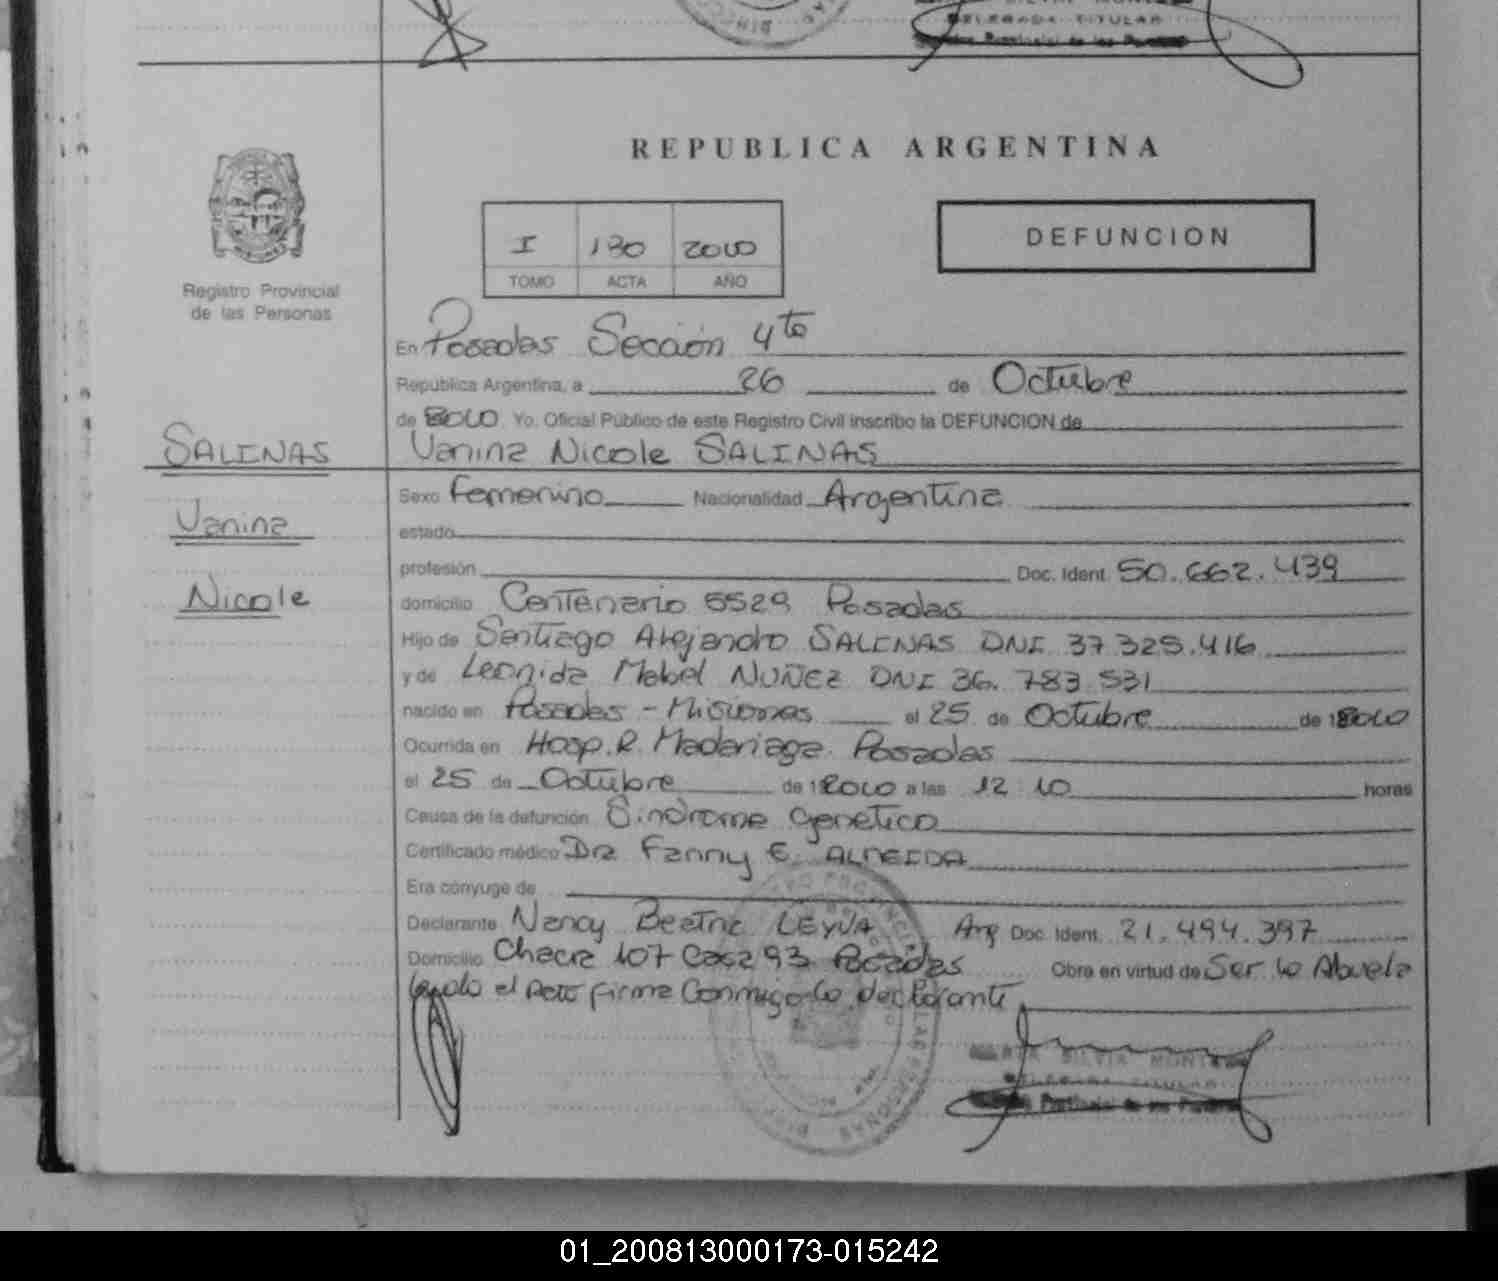 DELEGADA TITULAR
REPUBLICA ARGENTINA
I 130 2010
TOMO ACTA AÑO
DEFUNCION
Registro Provincial
de las Personas
En Posadas Sección 4ta
Republica Argentina, a 26 de Octubre
de 2010 Yo. Oficial Público de este Registro Civil inscribo la DEFUNCION de
SALINAS Vanina Nicole SALINAS
Sexo Femenino Nacionalidad Argentina
Vanina
estado
profesión Doc. Ident. 50.662.439
Nicole
domicilio Centenario 5529 Posadas
Hijo de Santiago Alejandro SALINAS DNI 37.325.416
y de Leonida Mabel NUÑEZ DNI 36.783.531
nacido en Posadas - Misiones el 25 de Octubre de 2010
Ocurrida en Hosp. R. Madariaga. Posadas
el 25 de Octubre de 2010 a las 12:10 horas
Causa de la defunción Sindrome genetico
Certificado médico Dra Fanny E. ALMEIDA
Era conyuge de
Declarante Nancy Beatriz LEYVA Arg Doc. Ident. 21.494.397
Domicilio Chacra 107 Casa 93 Posadas Obra en virtud de Ser la Abuela
Leido el Acta firma Conmigo la declarante
SILVIA
TITULAR
01_200813000173-015242